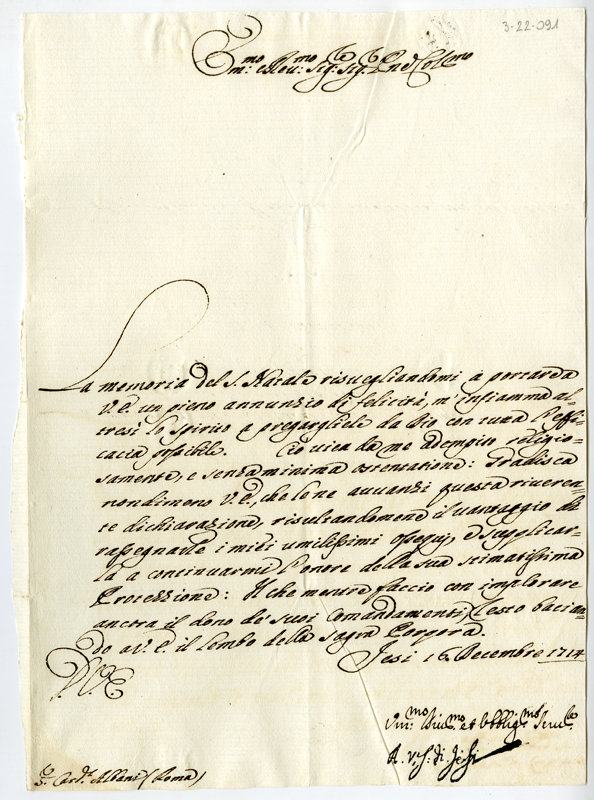 3-22-091
Em.mo e Rev.mo Sig.r Sig.r P.ne Col.mo
La memoria del S. Natale risuegliandomi à portar da
V. E. un pieno annunzio di felicità, m'infiamma al=
tresì lo spirito a pregargliele da Dio con tutta l'effi=
cacia possibile. Ciò vien da me adempito religio=
samente, e senza minima ostentatione: Gradisca
nondimeno V. E., che le ne auuanzi questa riueren=
te dichiarazione, risultandomene il vantaggio di
rassegnarle i miei umilissimi ossequij, e supplicar=
la a continuarmi l'onore della sua stimatissima
Protezzione: Il che mentre faccio con implorare
ancora il dono de suoi Comandamenti, resto bacian=
do a V. E. il lembo della Sagra Porpora.
Jesi 16 Decembre 1714
D. V. E.
Um.mo Diu.mo et Obblig.mo Seru.re
A. V. di Jesi
S.r Card.l Albani (Roma)